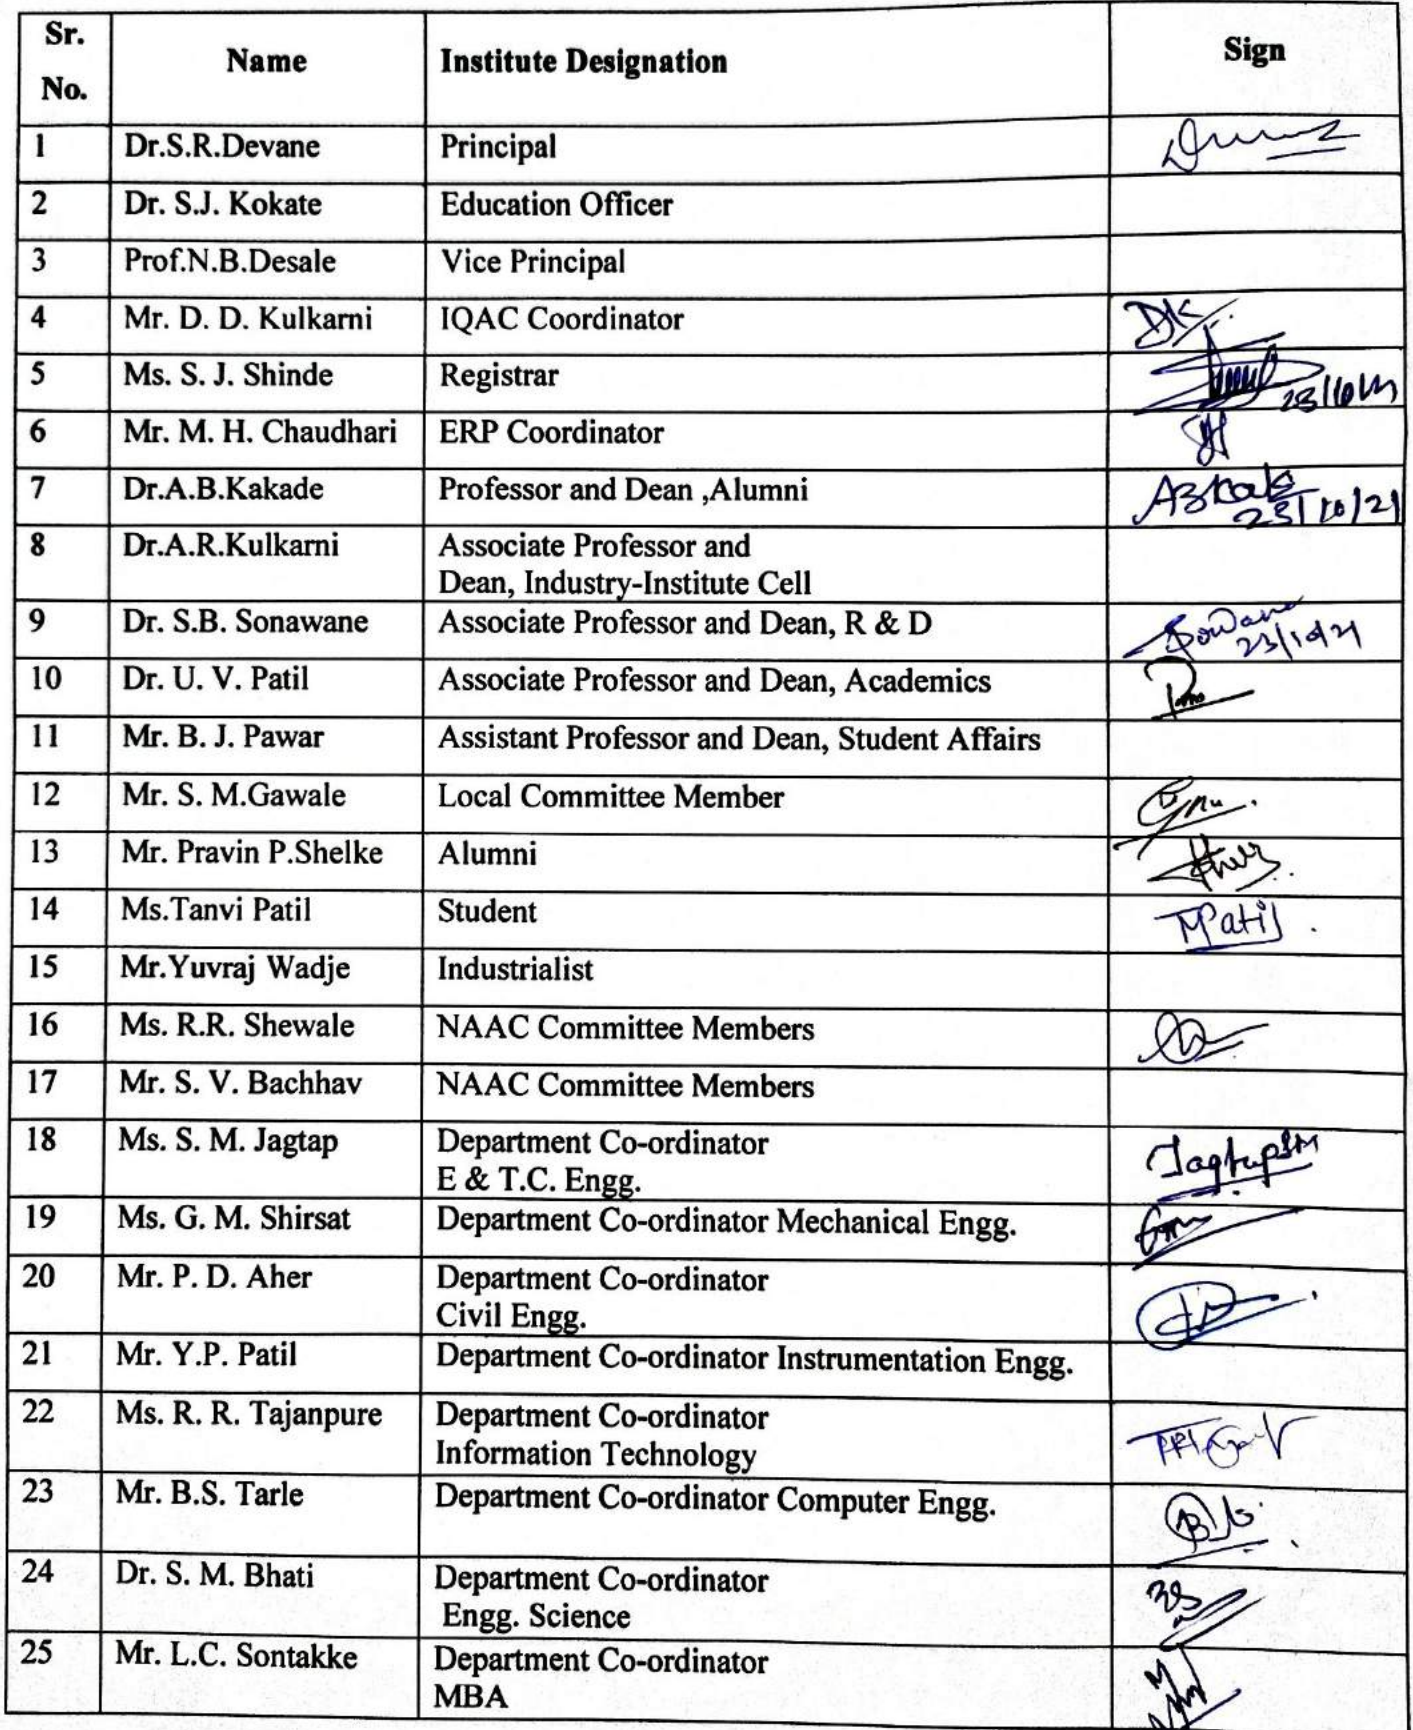 Sr.
No.
Name
Institute Designation
Sign
1 Dr.S.R.Devane Principal
2 Dr. S.J. Kokate Education Officer
3 Prof.N.B.Desale Vice Principal
4 Mr. D. D. Kulkarni IQAC Coordinator DK
5 Ms. S. J. Shinde Registrar
6 Mr. M. H. Chaudhari ERP Coordinator
7 Dr.A.B.Kakade Professor and Dean ,Alumni
23/10/21
8 Dr.A.R.Kulkarni Associate Professor and
Dean, Industry-Institute Cell
9 Dr. S.B. Sonawane Associate Professor and Dean, R & D
23/10/21
10 Dr. U. V. Patil Associate Professor and Dean, Academics
11 Mr. B. J. Pawar Assistant Professor and Dean, Student Affairs
12 Mr. S. M.Gawale Local Committee Member
13 Mr. Pravin P.Shelke Alumni
14 Ms.Tanvi Patil Student TPatil
15 Mr.Yuvraj Wadje Industrialist
16 Ms. R.R. Shewale NAAC Committee Members
17 Mr. S. V. Bachhav NAAC Committee Members
18 Ms. S. M. Jagtap Department Co-ordinator JagtapSM
E & T.C. Engg.
19 Ms. G. M. Shirsat Department Co-ordinator Mechanical Engg.
20 Mr. P. D. Aher Department Co-ordinator
Civil Engg.
21 Mr. Y.P. Patil Department Co-ordinator Instrumentation Engg.
22 Ms. R. R. Tajanpure Department Co-ordinator
Information Technology
23 Mr. B.S. Tarle Department Co-ordinator Computer Engg.
24 Dr. S. M. Bhati Department Co-ordinator
Engg. Science
25 Mr. L.C. Sontakke Department Co-ordinator
MBA